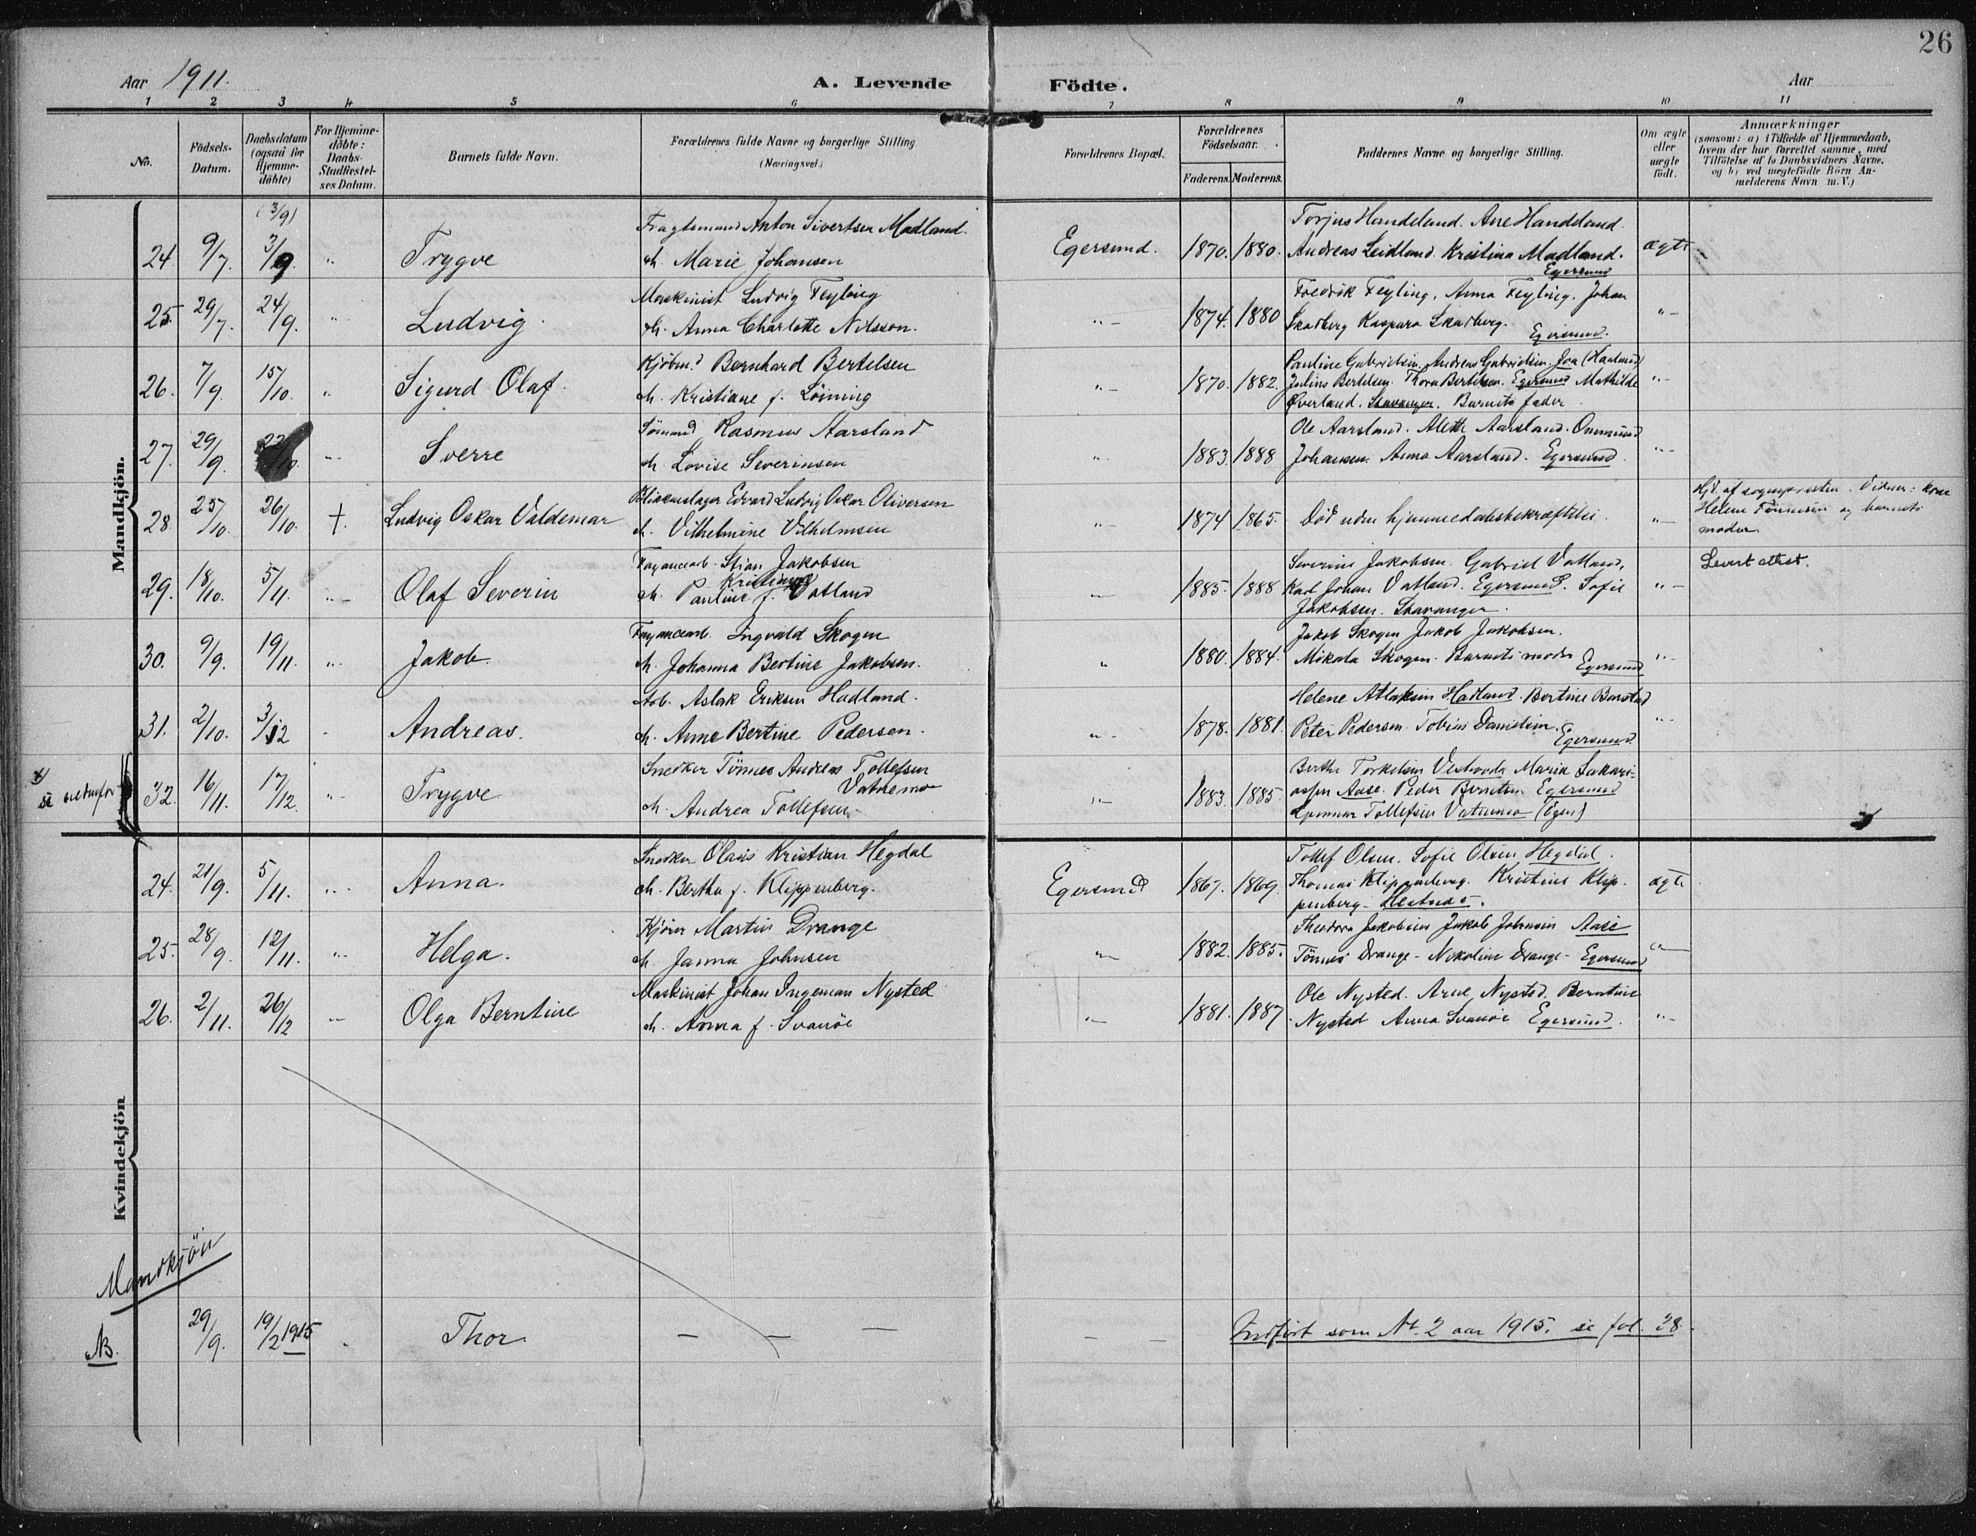 26
Aar 1911.
A. Levende Födte.
Aar
1 2 3 4 5 6 7 8 9 10 11
No.
Födsels-
Datum.
Daabsdatum
(ogsaa for
Hjemme-
döbte)
For Hjemme-
döbte:
Daabs-
Stadfæstel-
ses Datum.
Barnets fulde Navn.
Forældrenes fulde Navne og borgerlige Stilling
(Næringsvei.)
Forældrenes Bopæl.
Forældrenes
Födselsaar.
Faderens. Moderens.
Faddernes Navne og borgerlige Stilling.
Om ægte
eller
uægte
födt.
Anmærkninger
(saasom: a) i Tilfælde af Hjemmedaab,
hvem der har forrettet samme, med
Tilföielse af to Daabsvidners Navne,
og b) ved uægtefödte Börn An-
melderens Navn m. V.)
Mandkjön.
(3/9)
24. 9/7. 3/9 " Trygve
Fragtemand Anton Sivertsen Madland.
m. Marie Johansen
Egersund. 1870. 1880.
Torjus Handeland. Ane Handeland
Andreas Leidland. Kristina Madland.
Egersund
ægte
25. 29/7. 24/9. " Ludvig.
Maskinist Ludvig Feyling
m. Anna Charlotte Nilsson.
" 1874. 1880
Fredrik Feyling. Anna Feyling. Johan
Skadberg Kaspara Skadberg.
Egersund.
"
26. 7/9. 15/10. " Sigurd Olaf.
Kjøbmd Bernhard Bertelsen
m. Kristiane f. Löining
" 1870. 1882.
Pauline Gabrielsen. Andreas Gabrielsen,
Julius Bertelsen. Thora Bertelsen. Egersund Mathilde
Øverland. Stavanger. Barnets fader.
"
27. 29/9. " Sverre
Sømand Rasmus Aarsland
m. Lovise Severinsen
" 1883. 1888
Ole Aarsland. Alette Aarsland. Ommund
Johansen. Anna Aarsland. Egersund
"
28. 25/10. 26/10. +. Ludvig Oskar Valdemar
Blikkenslager Edvard Ludvig Oskar Oliversen
m. Vilhelmine Vilhelmsen
" 1874 1865.
Død uden hjemmedaabsbekræftelse.
"
Hjd. af sognepresten. Vidner: kone
Helene Tønnesen og barnets
moder.
29. 18/10. 5/11. " Olaf Severin
Fayancearb. Stian Jakobsen
Kristiane
m. Pauline f. Vatland
" 1885. 1888
Severine Jakobsen. Gabriel Vatland,
Karl Johan Vatland. Egersund. Sofie
Jakobsen. Stavanger.
"
Levert attest.
30. 9/9. 19/11. " Jakob.
Fayancearb. Ingvald Skogen
m. Johanna Bertine Jakobsen.
" 1880. 1884.
Jakob Skogen Jakob Jakobsen.
Mikala Skogen. Barnets moder Egersund
"
31. 2/10. 3/12 " Andreas.
Arb. Aslak Eriksen Hadland.
m. Anne Bertine Pedersen.
" 1878. 1881.
Helene Atlaksen Hadland. Bertine
Peter Pedersen. Tobias Danielsen.
Egersund.
"
se
32. 16/11. 17/12. " Trygve
Snedker Tönnes Andreas Tollefsen
Vatnemo
m. Andrea Tollefsen.
" 1883. 1885.
Berthe Torkelsen Maria Sakari-
assen Aase. Peder Berntsen Egersund
Gunnar Tollefsen Vatnemo (Egen)
Kvindekjön
24. 21/9. 5/11. " Anna.
Snedker Olaus Kristian Hegdal
m. Bertha f. Klippenberg.
Egersund 1867. 1869.
Tollef Olsen. Sofie Olsen Hegdal.
Thomas Klippenberg. Kristine Klip-
penberg-
ægte
25. 28/9. 12/11. " Helga.
Kjörer Martin Drange
m. Janna Johnsen
" 1882. 1885.
Theodora Jakobsen Jakob Johnsen Aase
Tönnes Drange- Nikoline Drange- Egersund
"
26. 2/11. 26/12 " Olga Berntine
Maskinist Johan Ingeman Nysted
m. Anna f. Svanöe
" 1881. 1887.
Ole Nysted. Arne Nysted. Berntine
Nysted Anna Svanöe Egersund.
"
Mandkjön
NB. 29/9. 19/2 1915 " Thor — — — — — Indført som Nr. 2 aar 1915. se fol. 38.